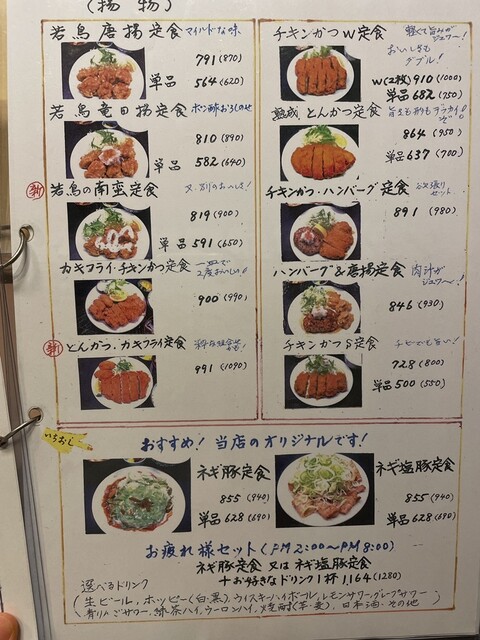 (揚物)
若鳥唐揚定食 マイルドな味
791(870)
単品 564(620)
若鳥竜田揚定食 ポン酢おろしのせ
810(890)
単品 582(640)
新 若鳥の南蛮定食
819(900)
単品 591(650)
カキフライ・チキンかつ定食 一皿で2度おいしい!
900(990)
新 とんかつ・カキフライ定食
991(1090)
チキンかつW定食 軽くて旨みがジュワー!
おいしさもダブル!
W(2枚)910(1000)
単品 682(750)
熟成 とんかつ定食
864(950)
単品 637(700)
チキンかつ・ハンバーグ定食 欲張りセット
891(980)
ハンバーグ&唐揚定食 肉汁がジュワ〜!
846(930)
チキンかつS定食 チビでも旨い!
728(800)
単品 500(550)
いちおし
おすすめ! 当店のオリジナルです!
ネギ豚定食
855(940)
単品 628(690)
ネギ塩豚定食
855(940)
単品 628(690)
お疲れ様セット(PM2:00〜PM8:00)
ネギ豚定食 又は ネギ塩豚定食
+お好きなドリンク1杯 1,164(1280)
選べるドリンク
(生ビール、ホッピー(白・黒)、ウイスキーハイボール、レモンサワー、グレープサワー
青りんごサワー、緑茶ハイ、ウーロンハイ、焼酎(芋・麦)、日本酒・その他)